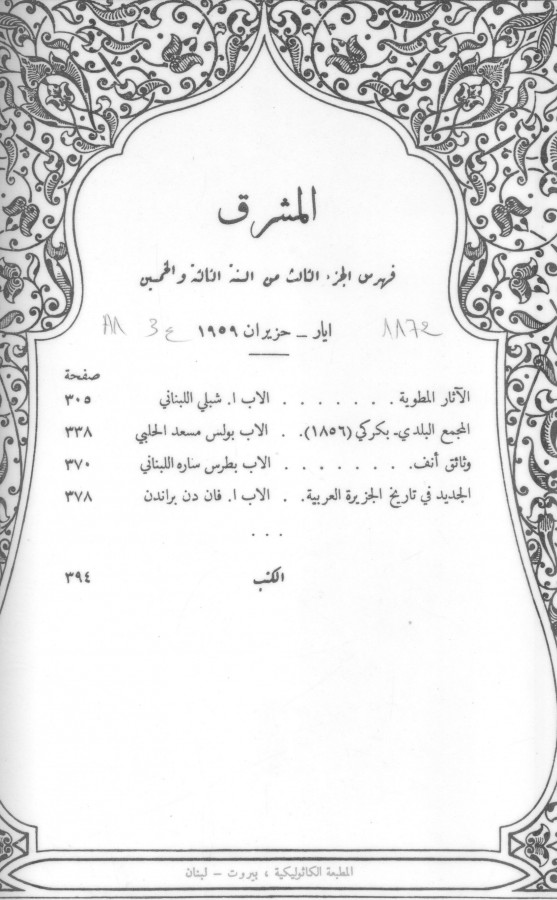 المشرق
فهرس الجزء الثالث من السنة الثالثة والخمسين
ايار – حزيران ١٩٥٩
صفحة
الآثار المطوية . . . . . . . الاب ا. شبلي اللبناني ٣٠٥
المجمع البلدي- بكركي (١٨٥٦). . الاب بولس مسعد الحلبي ٣٣٨
وثائق أنف. . . . . . . . الاب بطرس ساره اللبناني ٣٧٠
الجديد في تاريخ الجزيرة العربية. . الاب ا. فان دن براندن ٣٧٨
. . .
الكتب ٣٩٤
المطبعة الكاثوليكية ، بيروت – لبنان